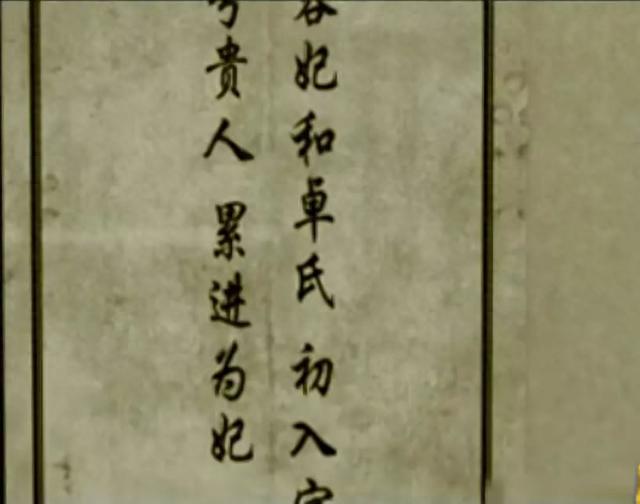 妃和卓氏 初入
貴人 累进为妃